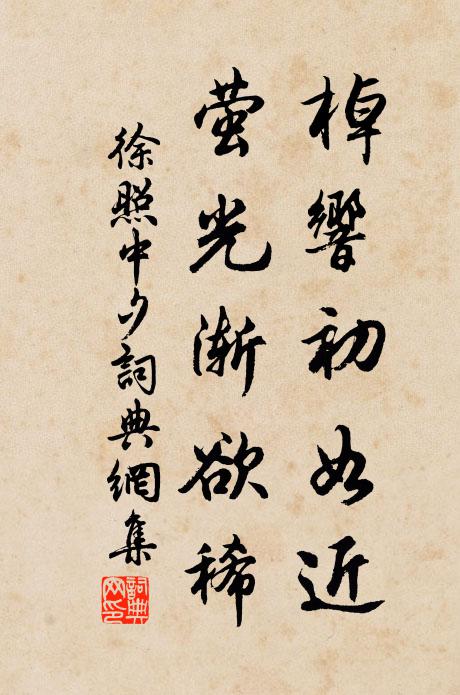 棹響初如近
螢光漸欲稀
徐照中夕詞典網集
詞典網印